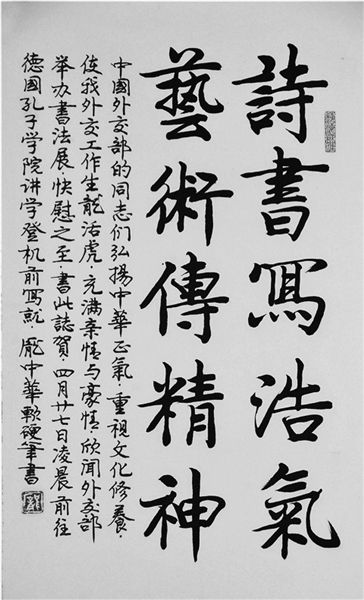 詩書寫浩氣
藝術傳精神
中國外交部的同志们弘揚中华正氣·重視文化修養·
使我外交工作生龍活虎·充满亲情与豪情·欣闻外交部
举办書法展·快慰之至·書此誌賀·四月廿七日凌晨前往
德國孔子学院讲学登机前寫就 龐中華软硬筆書